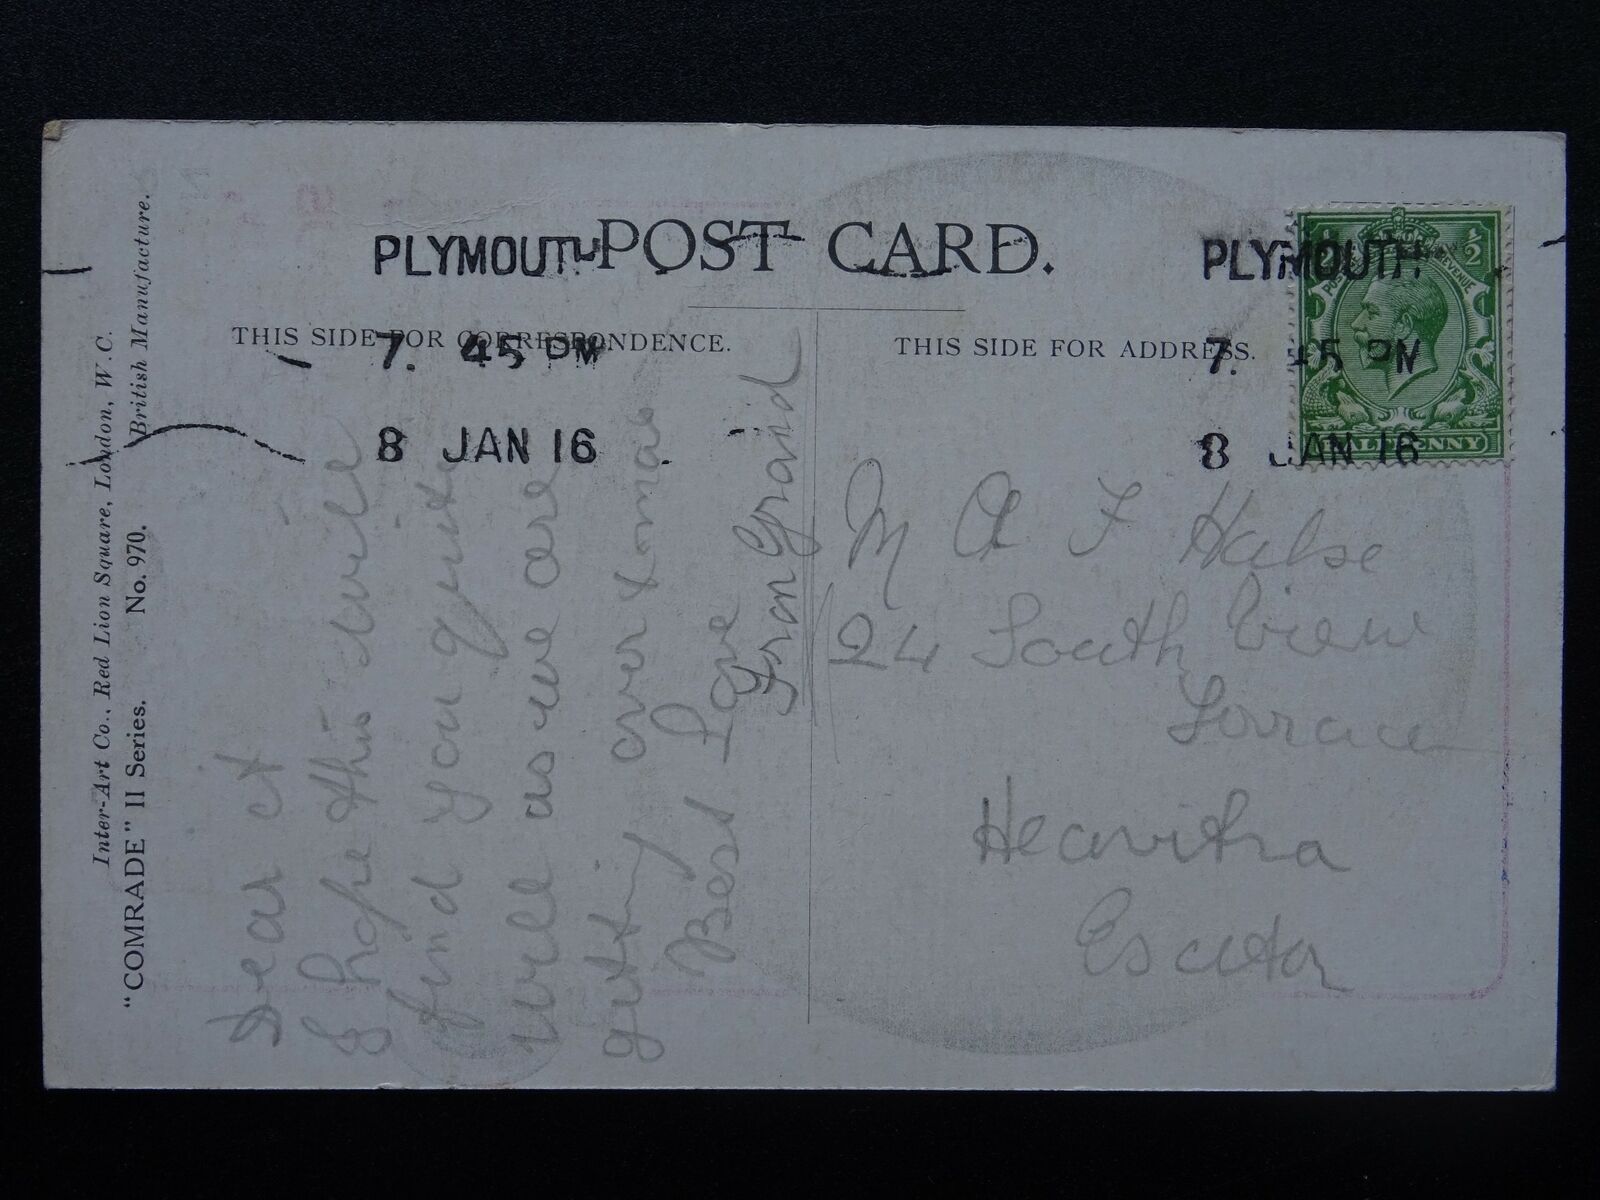 PLYMOUTH
7. 45 PM
8 JAN 16
POST CARD.
PLYMOUTH
7. 45 PM
8 JAN 16
½ ½
POSTAGE REVENUE
HALFPENNY
THIS SIDE FOR CORRESPONDENCE.
THIS SIDE FOR ADDRESS.
Inter-Art Co., Red Lion Square, London, W.C.
British Manufacture.
"COMRADE" II Series. No. 970.
Dear
I hope this will
find you quite
well as we are
getting over xmas
Best Love
from Grand
M A F Halse
24 South View
Heavitra